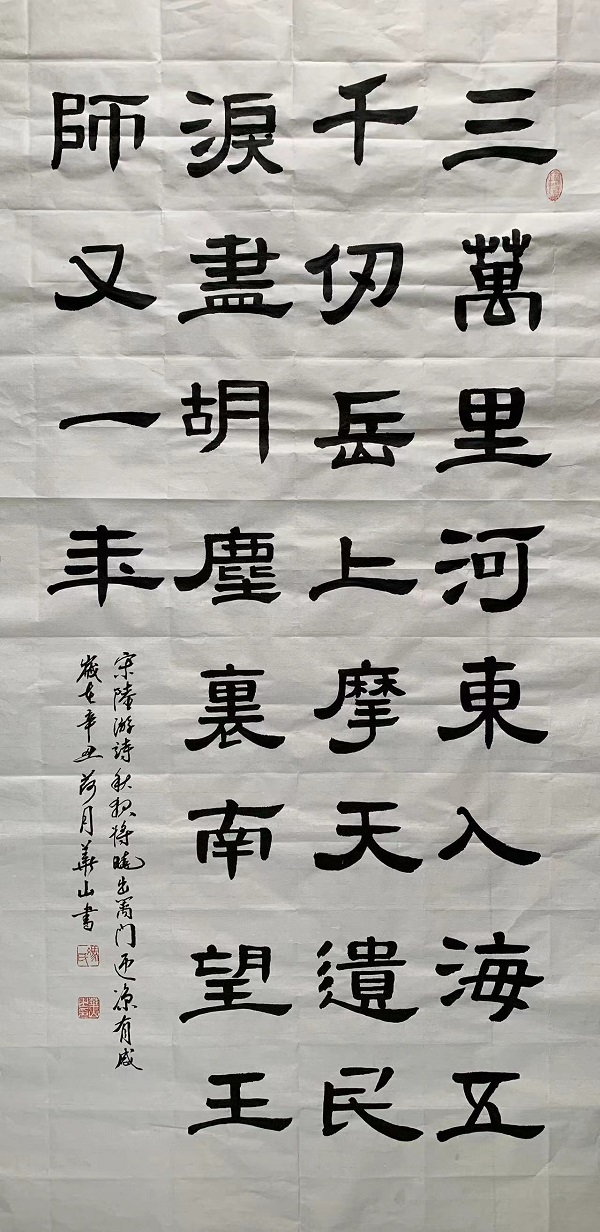 三萬里河東入海五
千仞岳上摩天遺民
淚盡胡塵裏南望王
師又一年
宋陸游詩秋夜將曉出籬门迎凉有感
歲在辛丑荷月華山書